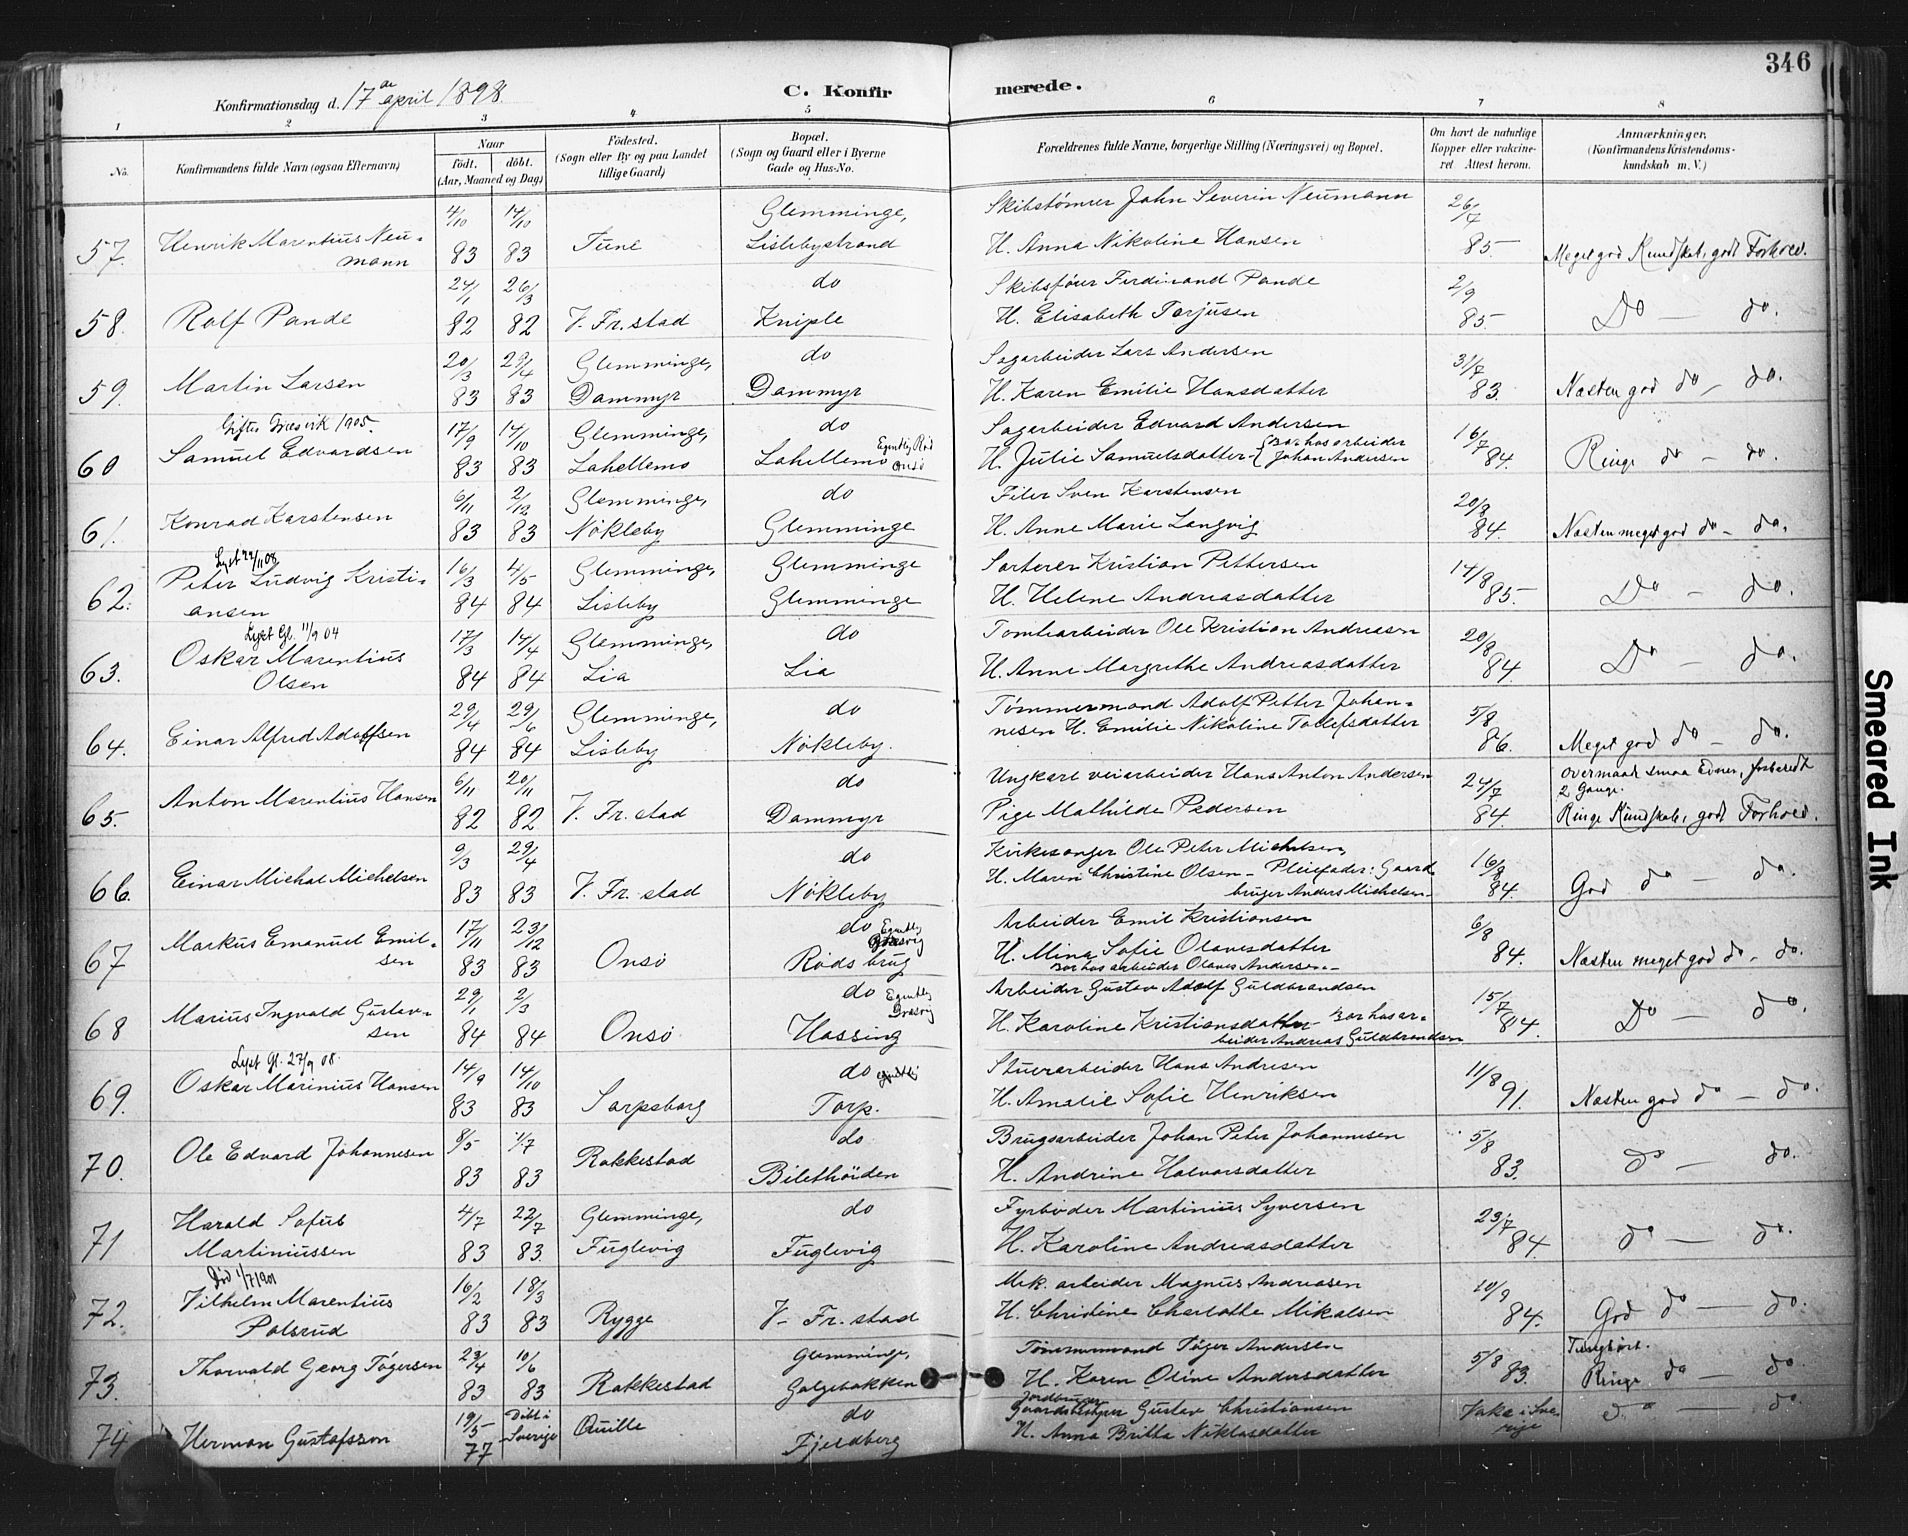 346
Konfirmationsdag d. 17de april 1898.
C. Konfirmerede.
1 2 3 4 5 6 7 8
No.
Konfirmandens fulde Navn (ogsaa Efternavn)
Naar
födt. döbt.
(Aar, Maaned og Dag)
Födested.
(Sogn eller By og paa Landet
tillige Gaard)
Bopæl.
(Sogn og Gaard eller i Byerne
Gade og Hus-No.
Forældrenes fulde Navne, borgerlige Stilling (Næringsvei) og Bopæl.
Om havt de naturlige
Kopper eller vakcine-
ret Attest herom.
Anmærkninger,
(Konfirmandens Kristendoms-
kundskab m. V.)
4/10 14/10 Glemminge, Skibstømrer John Severin Neumann 26/7
57. Henrik Marentius Neu-
mann 83 83 Tune Lislebystrand H. Anna Nikoline Hansen 85 Meget god Kundskab, godt Forhold.
24/1 26/3 do Skibsfører Ferdinand Pande 2/9
58. Rolf Pande 82 82 V. Fr.stad Kniple H. Elisabeth Torjusen 85 Do — do.
20/3 29/4 Glemminge, do Sagarbeider Lars Andersen 31/7
59. Martin Larsen 83 83 Dammyr Dammyr H. Karen Emilie Hansdatter 83. Næsten god do — do.
Giftes Græsvik 1905.
17/9 14/10 Glemminge, do Sagarbeider Edvard Andersen 16/7
60 Samuel Edvardsen 83 83 Lahellemo Lahellemo Egentlig Rød Onsø H. Julie Samuelsdatter – { Bor hos arbeider Johan Andersen 84. Ringe do — do.
6/11 2/12 Glemminge, do Filer Sven Karstensen 20/8
61. Konrad Karstensen 83 83 Nøkleby Glemminge H. Anne Marie Langvig 84. Næsten meget god do — do.
Lyst 22/11 08
16/3 4/5 Glemminge, Glemminge Sorterer Kristian Pettersen 14/8
62. Peter Ludvig Kristi-
ansen 84 84 Lisleby Glemminge H. Helene Andreasdatter 85. Do — do.
Lyst Gl. 11/9 04
17/3 14/4 Glemminge, do Tomtearbeider Ole Kristian Andreasen 20/8
63. Oskar Marentius
Olsen 84 84 Lia Lia H. Anne Margrethe Andreasdatter 84 Do — do.
29/4 29/6 Glemminge, do Tømmermand Adolf Petter Johan- 5/8
64. Einar Alfred Adolfsen 84 84 Lisleby Nøkleby. nesen H. Emilie Nikoline Tollefsdatter 86. Meget god do — do.
6/11 20/11 do Ungkarl veiarbeider Hans Anton Andersen 24/7 overmaade smaa Evner, forberedt 2 Gange.
65. Anton Marentius Hansen 82 82 V. Fr.stad Dammyr Pige Mathilde Pedersen 84. Ringe Kundskab, godt Forhold.
9/3 29/4 do Kirkesanger Ole Peter Michelsen, 16/8
66. Einar Michal Michelsen 83 83 V. Fr. stad Nøkleby H. Maren Christine Olsen – Pleiefader: Gaard-
bruger Anders Michelsen 84. God do — do.
17/11 23/12 do Egentlig Græsvig Arbeider Emil Kristiansen 6/8
67 Markus Emanuel Emil-
sen 83 83 Onsø Røds brug H. Mina Sofie Olavesdatter 84. Næsten meget god do — do.
Bor hos arbeider Olaves Andersen.
29/1 2/3 do Egentlig Græsvig Arbeider Gustav Adolf Guldbrandsen 15/7
68 Marius Ingvald Gustav-
sen 84 84 Onsø Hassing H. Karoline Kristiansdatter – Bor hos ar-
beider Andreas Guldbrandsen 84. Do — do
Lyst Gl. 27/9 08.
14/9 14/10 do egentlig Stuerarbeider Hans Andresen 11/8
69. Oskar Marinius Hansen 83 83 Sarpsborg Torp. H. Amalie Sofie Henriksen 91. Næsten god do — do.
8/5 1/7 do Brugsarbeider Johan Peter Johannesen 5/8
70. Ole Edvard Johannesen 83 83 Rakkestad Bilethöiden H. Andrine Halvorsdatter 83. do — do.
4/7 22/7 Glemminge, do Fyrbøder Martinius Syversen 23/7
71 Harald Sofus
Martiniussen 83 83. Fuglevig Fuglevig H. Karoline Andreasdatter 84. do — do.
Död 1/7 1901
16/2 18/3 Mek. arbeider Magnus Andreasen 10/9
72. Vilhelm Marentius
Polsrud 83 83 Rygge V. Fr. stad H. Christine Charlotte Mikalsen 84. God do — do.
23/4 10/6 Glemminge, Tømmermand Töger Andersen 5/8 Tunghørt.
73. Thorvald Georg Tögersen 83 83 Rakkestad Galgebakken H. Karen Oline Andersdatter 83. Ringe do — do.
19/5 Döbt i Sverige Quille do Jordbruger Gustav Christiansen Vakc. i Sve-
rige do — do.
74. Herman Gustafsson 77 Fjeldberg H. Anna Britta Niklasdatter
Smeared Ink